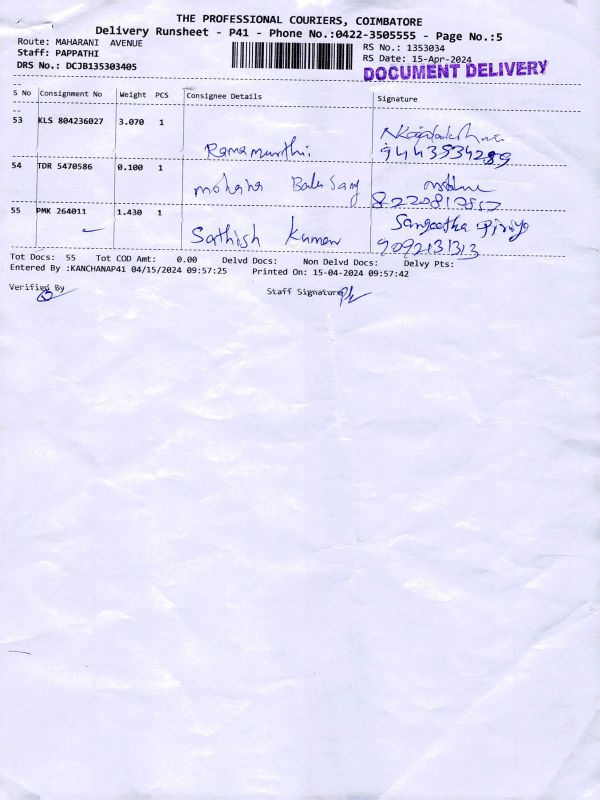 THE PROFESSIONAL COURIERS, COIMBATORE
Delivery Runsheet - P41 - Phone No.:0422-3505555 - Page No.:5
Route: MAHARANI AVENUE
RS No.: 1353034
Staff: PAPPATHI
RS Date: 15-Apr-2024
DRS No.: DCJB135303405
DOCUMENT DELIVERY
S No Consignment No Weight PCS Consignee Details Signature
53 KLS 804236027 3.070 1
Ramamurthi
9443534289
54 TDR 5470586 0.100 1
mohana
55 PMK 264011 1.430 1
Sangeetha
Sathish Kumar
9092131313
Tot Docs: 55 Tot COD Amt: 0.00 Delvd Docs: Non Delvd Docs: Delvy Pts:
Entered By :KANCHANAP41 04/15/2024 09:57:25 Printed On: 15-04-2024 09:57:42
Verified By
Staff Signature